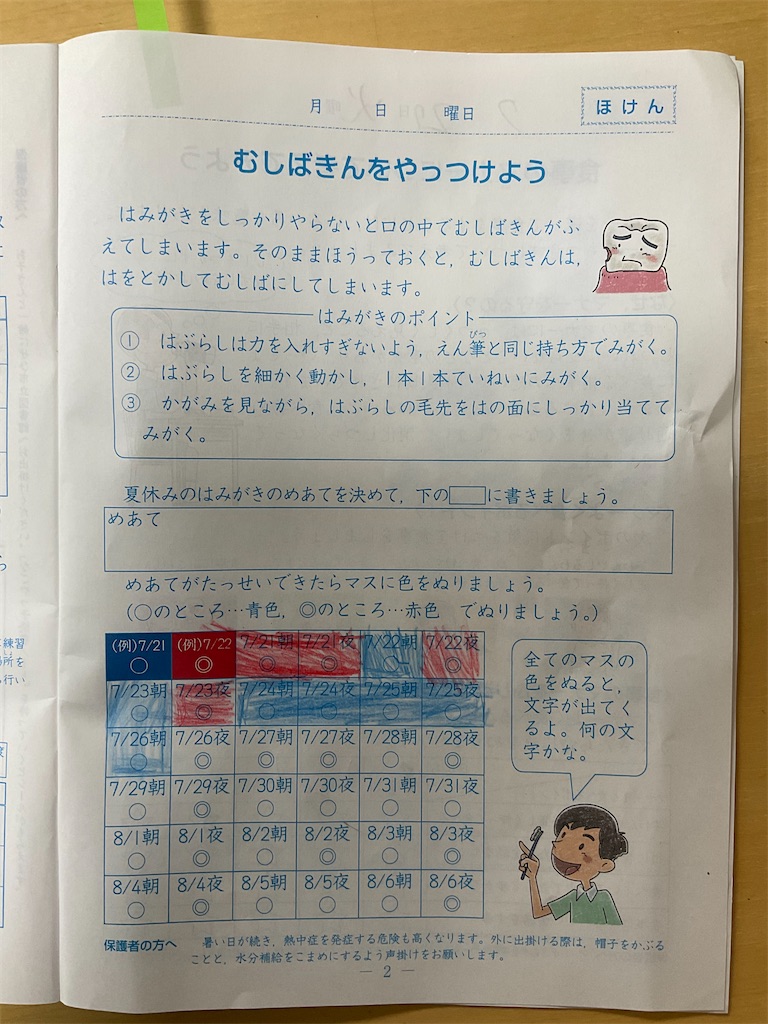 月　日　曜日
ほけん
むしばきんをやっつけよう
はみがきをしっかりやらないと口の中でむしばきんがふ
えてしまいます。そのままほうっておくと，むしばきんは，
はをとかしてむしばにしてしまいます。
はみがきのポイント
① はぶらしは力を入れすぎないよう，えん筆と同じ持ち方でみがく。
ぴつ
② はぶらしを細かく動かし，1本1本ていねいにみがく。
③ かがみを見ながら，はぶらしの毛先をはの面にしっかり当てて
みがく。
夏休みのはみがきのめあてを決めて，下の□に書きましょう。
めあて
めあてがたっせいできたらマスに色をぬりましょう。
（○のところ…青色，◎のところ…赤色　でぬりましょう。）
(例)7/21 (例)7/22 7/21朝 7/21夜 7/22朝 7/22夜
○ ◎ ◎ ◎ ○ ◎
7/23朝 7/23夜 7/24朝 7/24夜 7/25朝 7/25夜
○ ◎ ○ ○ ○ ○
7/26朝 7/26夜 7/27朝 7/27夜 7/28朝 7/28夜
○ ◎ ◎ ◎ ○ ◎
7/29朝 7/29夜 7/30朝 7/30夜 7/31朝 7/31夜
○ ◎ ○ ○ ○ ○
8/1朝 8/1夜 8/2朝 8/2夜 8/3朝 8/3夜
○ ◎ ○ ◎ ○ ◎
8/4朝 8/4夜 8/5朝 8/5夜 8/6朝 8/6夜
○ ◎ ○ ○ ○ ◎
全てのマスの
色をぬると，
文字が出てく
るよ。何の文
字かな。
保護者の方へ　暑い日が続き，熱中症を発症する危険も高くなります。外に出掛ける際は，帽子をかぶる
ことと，水分補給をこまめにするよう声掛けをお願いします。
— 2 —